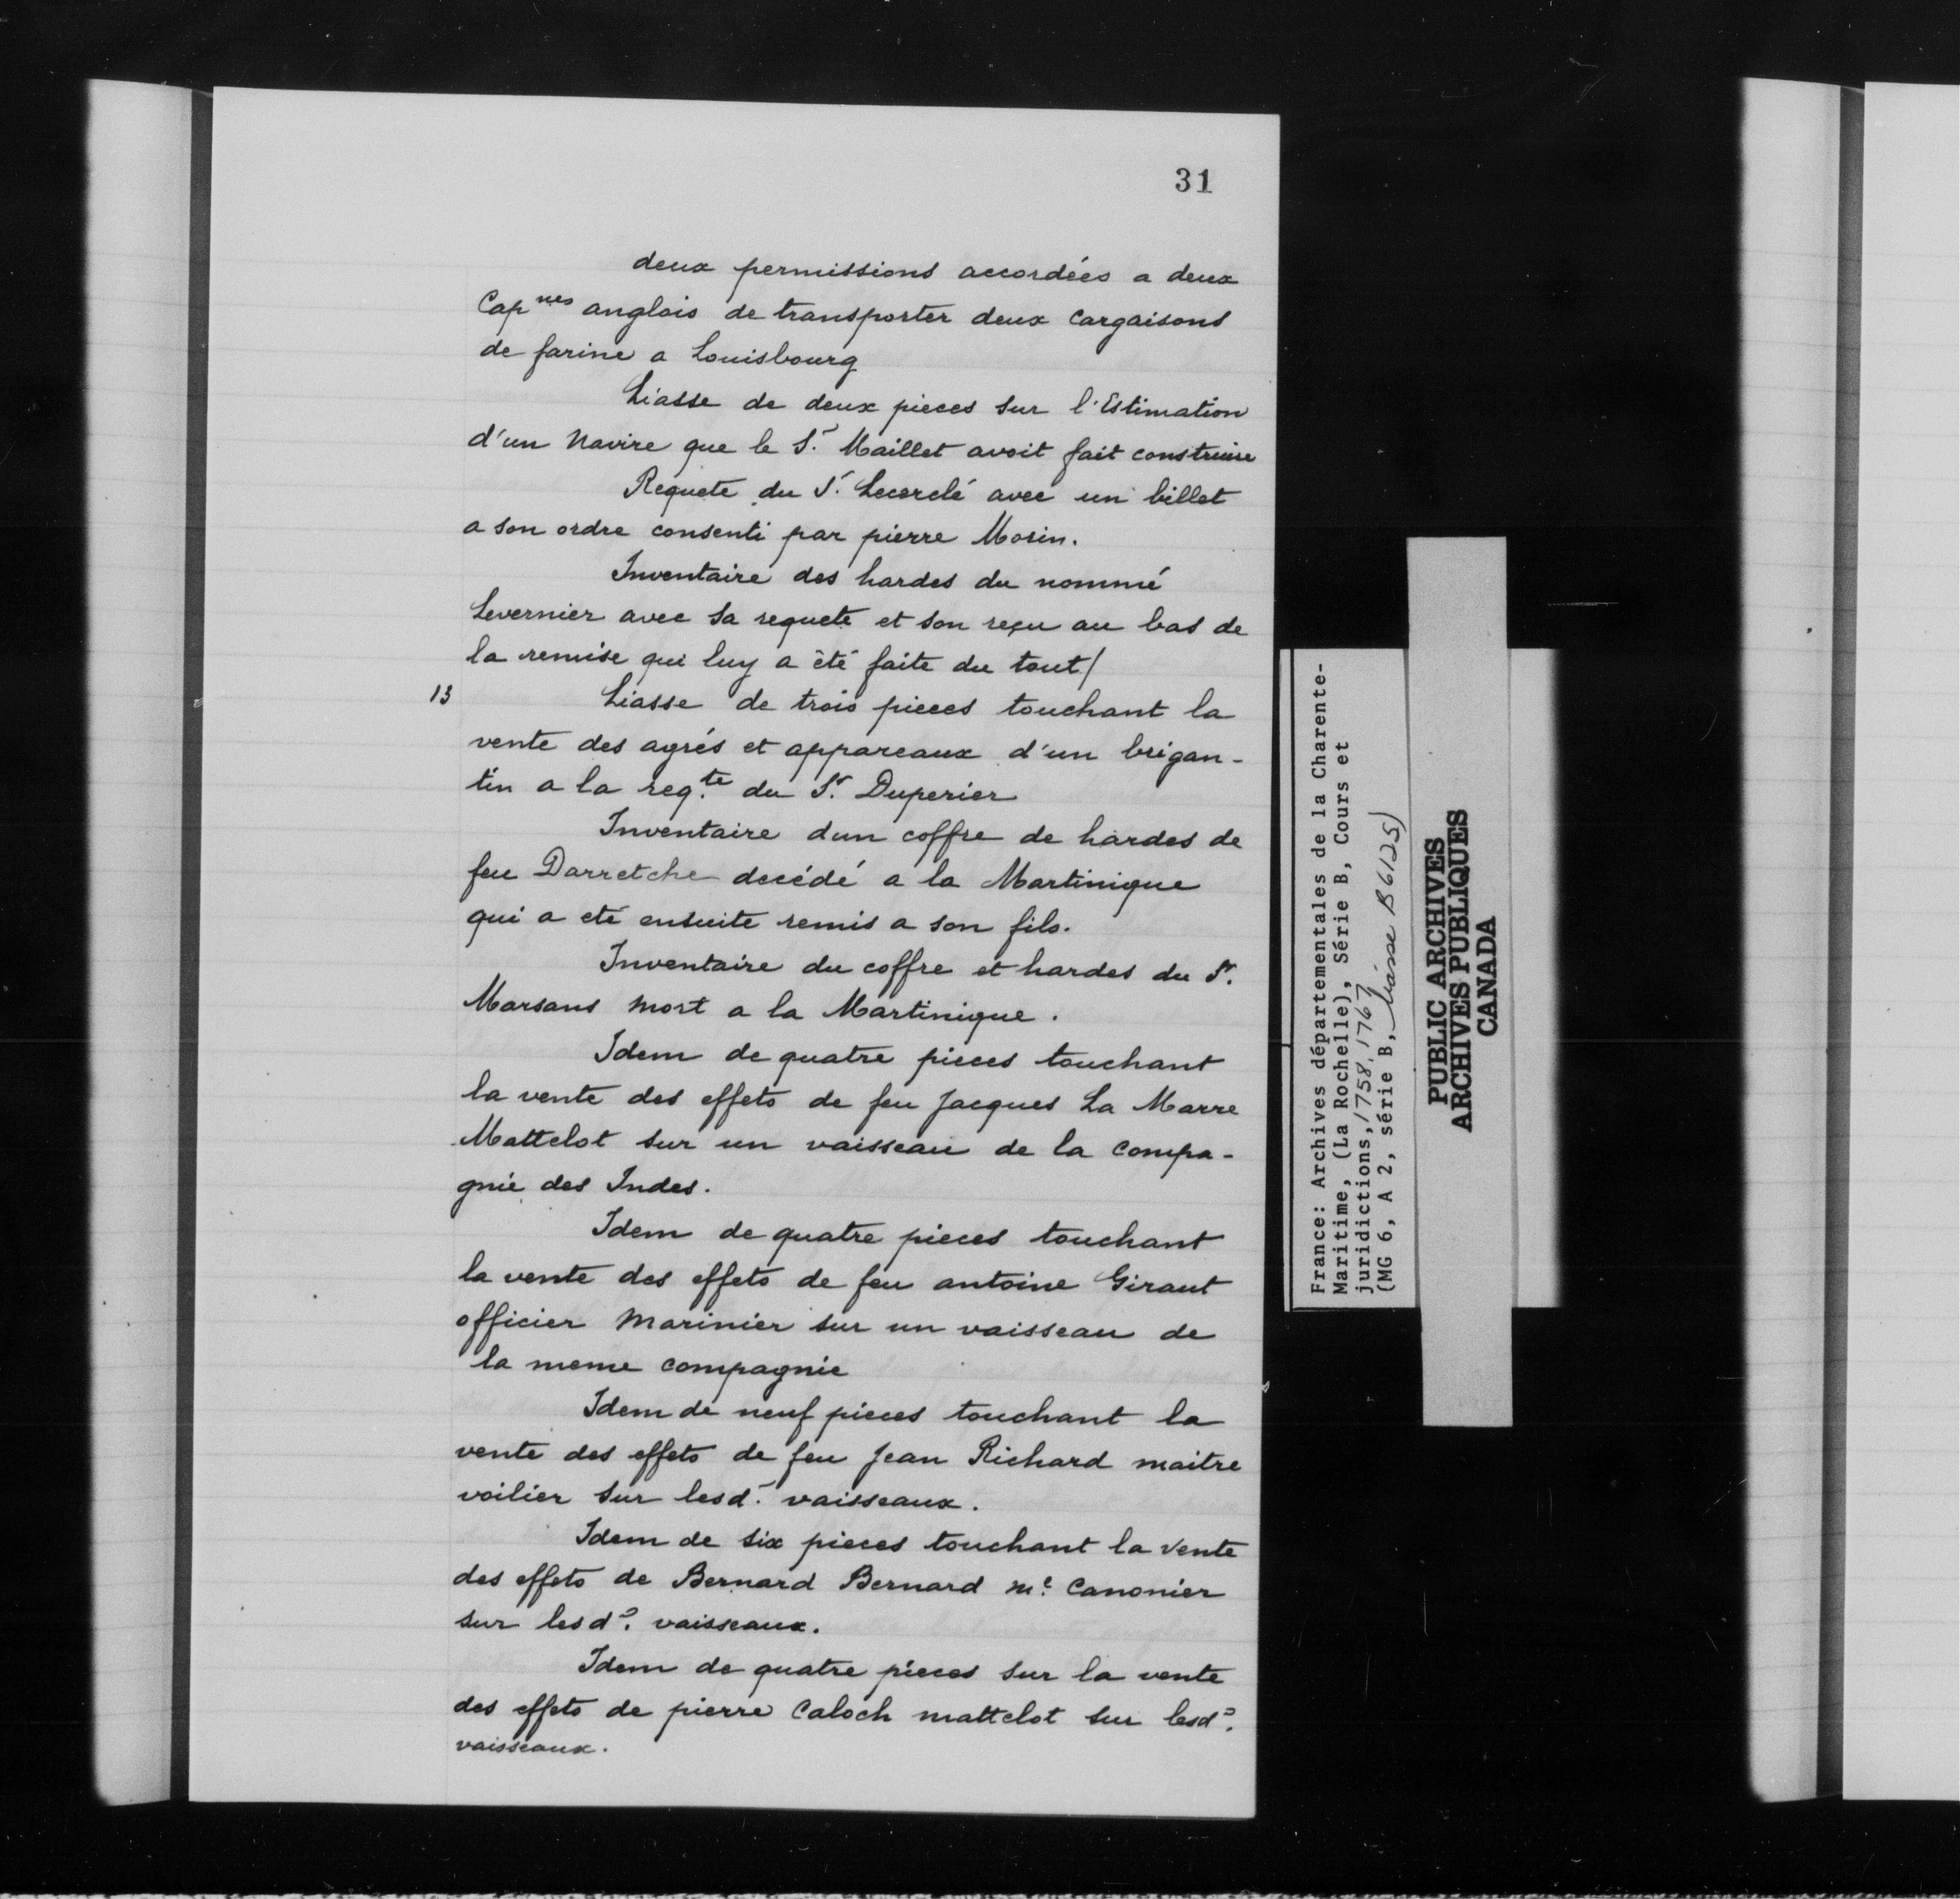 31
deux permissions accordées a deux
Cap nes anglois de transporter deux Cargaisons
de farine a Louisbourg
Liasse de deux pieces sur l'Estimation
d'un Navire que le Sr. Maillet avoit fait construire
Requete du Sr. Lecerclé avec un billet
a son ordre consenti par pierre Morin.
Inventaire des hardes du nommé
Levernier avec sa requete et son reçu au bas de
la remise qui luy a été faite du tout/
13 Liasse de trois pieces touchant la
vente des agrés et appareaux d'un brigan-
tin a la reqte. du Sr. Duperier
Inventaire dun coffre de hardes de
feu Darretche decédé a la Martinique
qui a eté ensuite remis a son fils.
Inventaire du coffre et hardes du Sr.
Marsans Mort a la Martinique.
Idem de quatre pieces touchant
la vente des effets de feu Jacques La Marre
Mattelot sur un vaisseau de la Compa-
gnie des Indes.
Idem de quatre pieces touchant
la vente des effets de feu antoine Giraut
officier Marinier sur un vaisseau de
la meme compagnie
Idem de neuf pieces touchant la
vente des effets de feu Jean Richard maitre
voilier sur lesd. vaisseaux.
Idem de six pieces touchant la Vente
des effets de Bernard Bernard me. Canonier
sur lesds. vaisseaux.
Idem de quatre pieces sur la vente
des effets de pierre Caloch mattelot sur lesds.
vaisseaux.
France: Archives départementales de la Charente-
Maritime, (La Rochelle), Série B, Cours et
juridictions, 1758, 1767
(MG 6, A 2, série B, liasse B6125)
PUBLIC ARCHIVES
ARCHIVES PUBLIQUES
CANADA